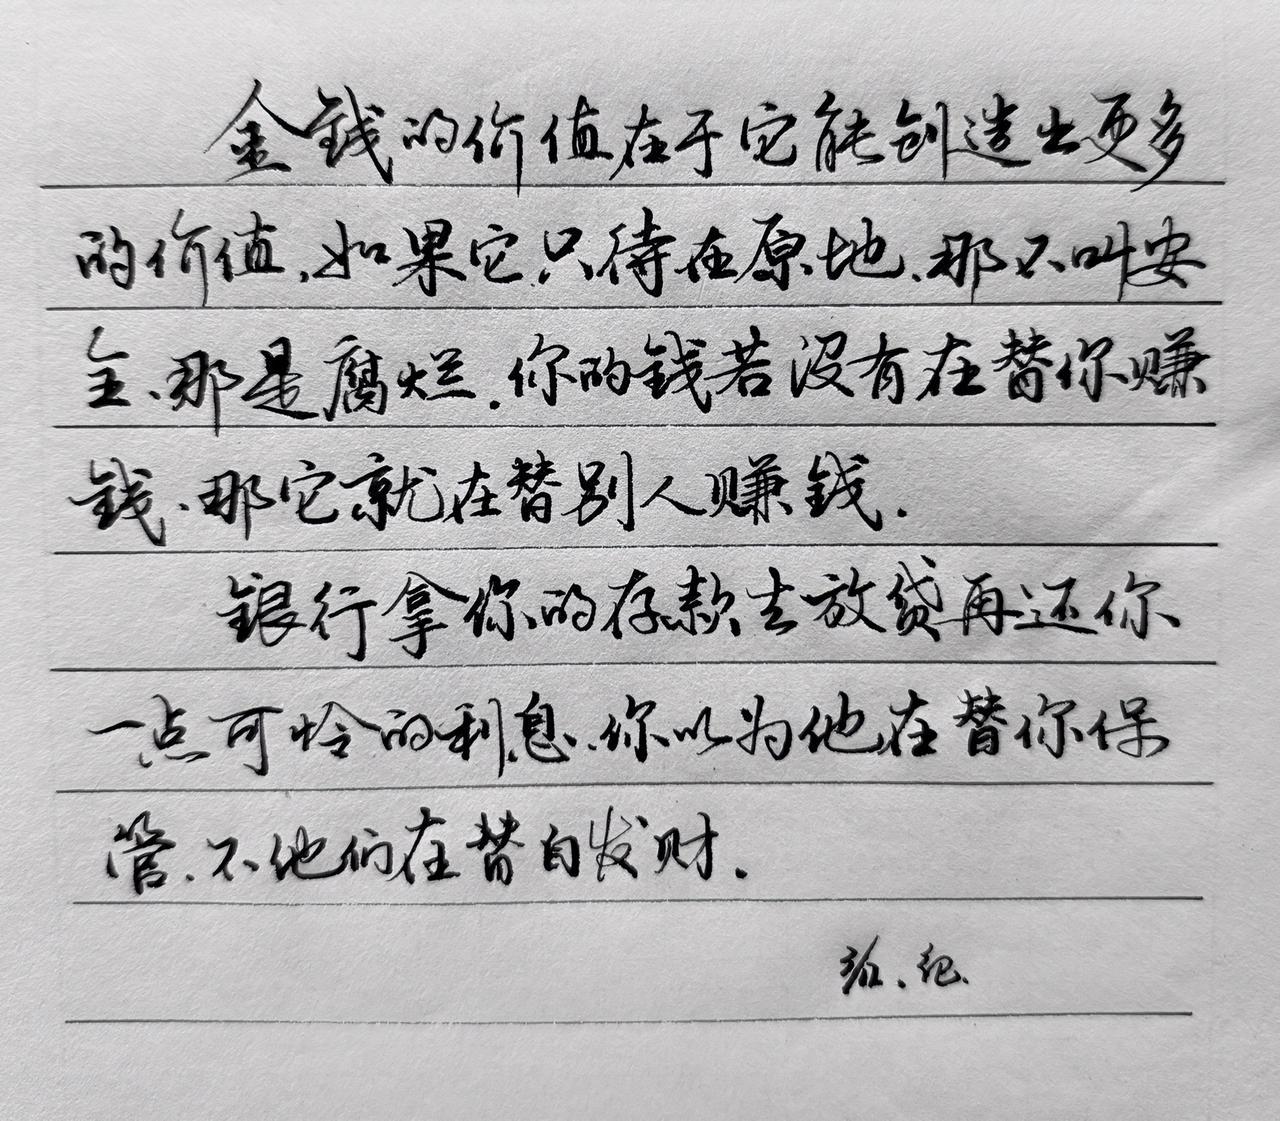 金钱的价值在于它能创造出更多
的价值,如果它只待在原地、那不叫安
全、那是腐烂.你的钱若没有在替你赚
钱、那它就在替别人赚钱.
银行拿你的存款去放贷再还你
一点可怜的利息、你以为他在替你保
管、不他们在替自发财.